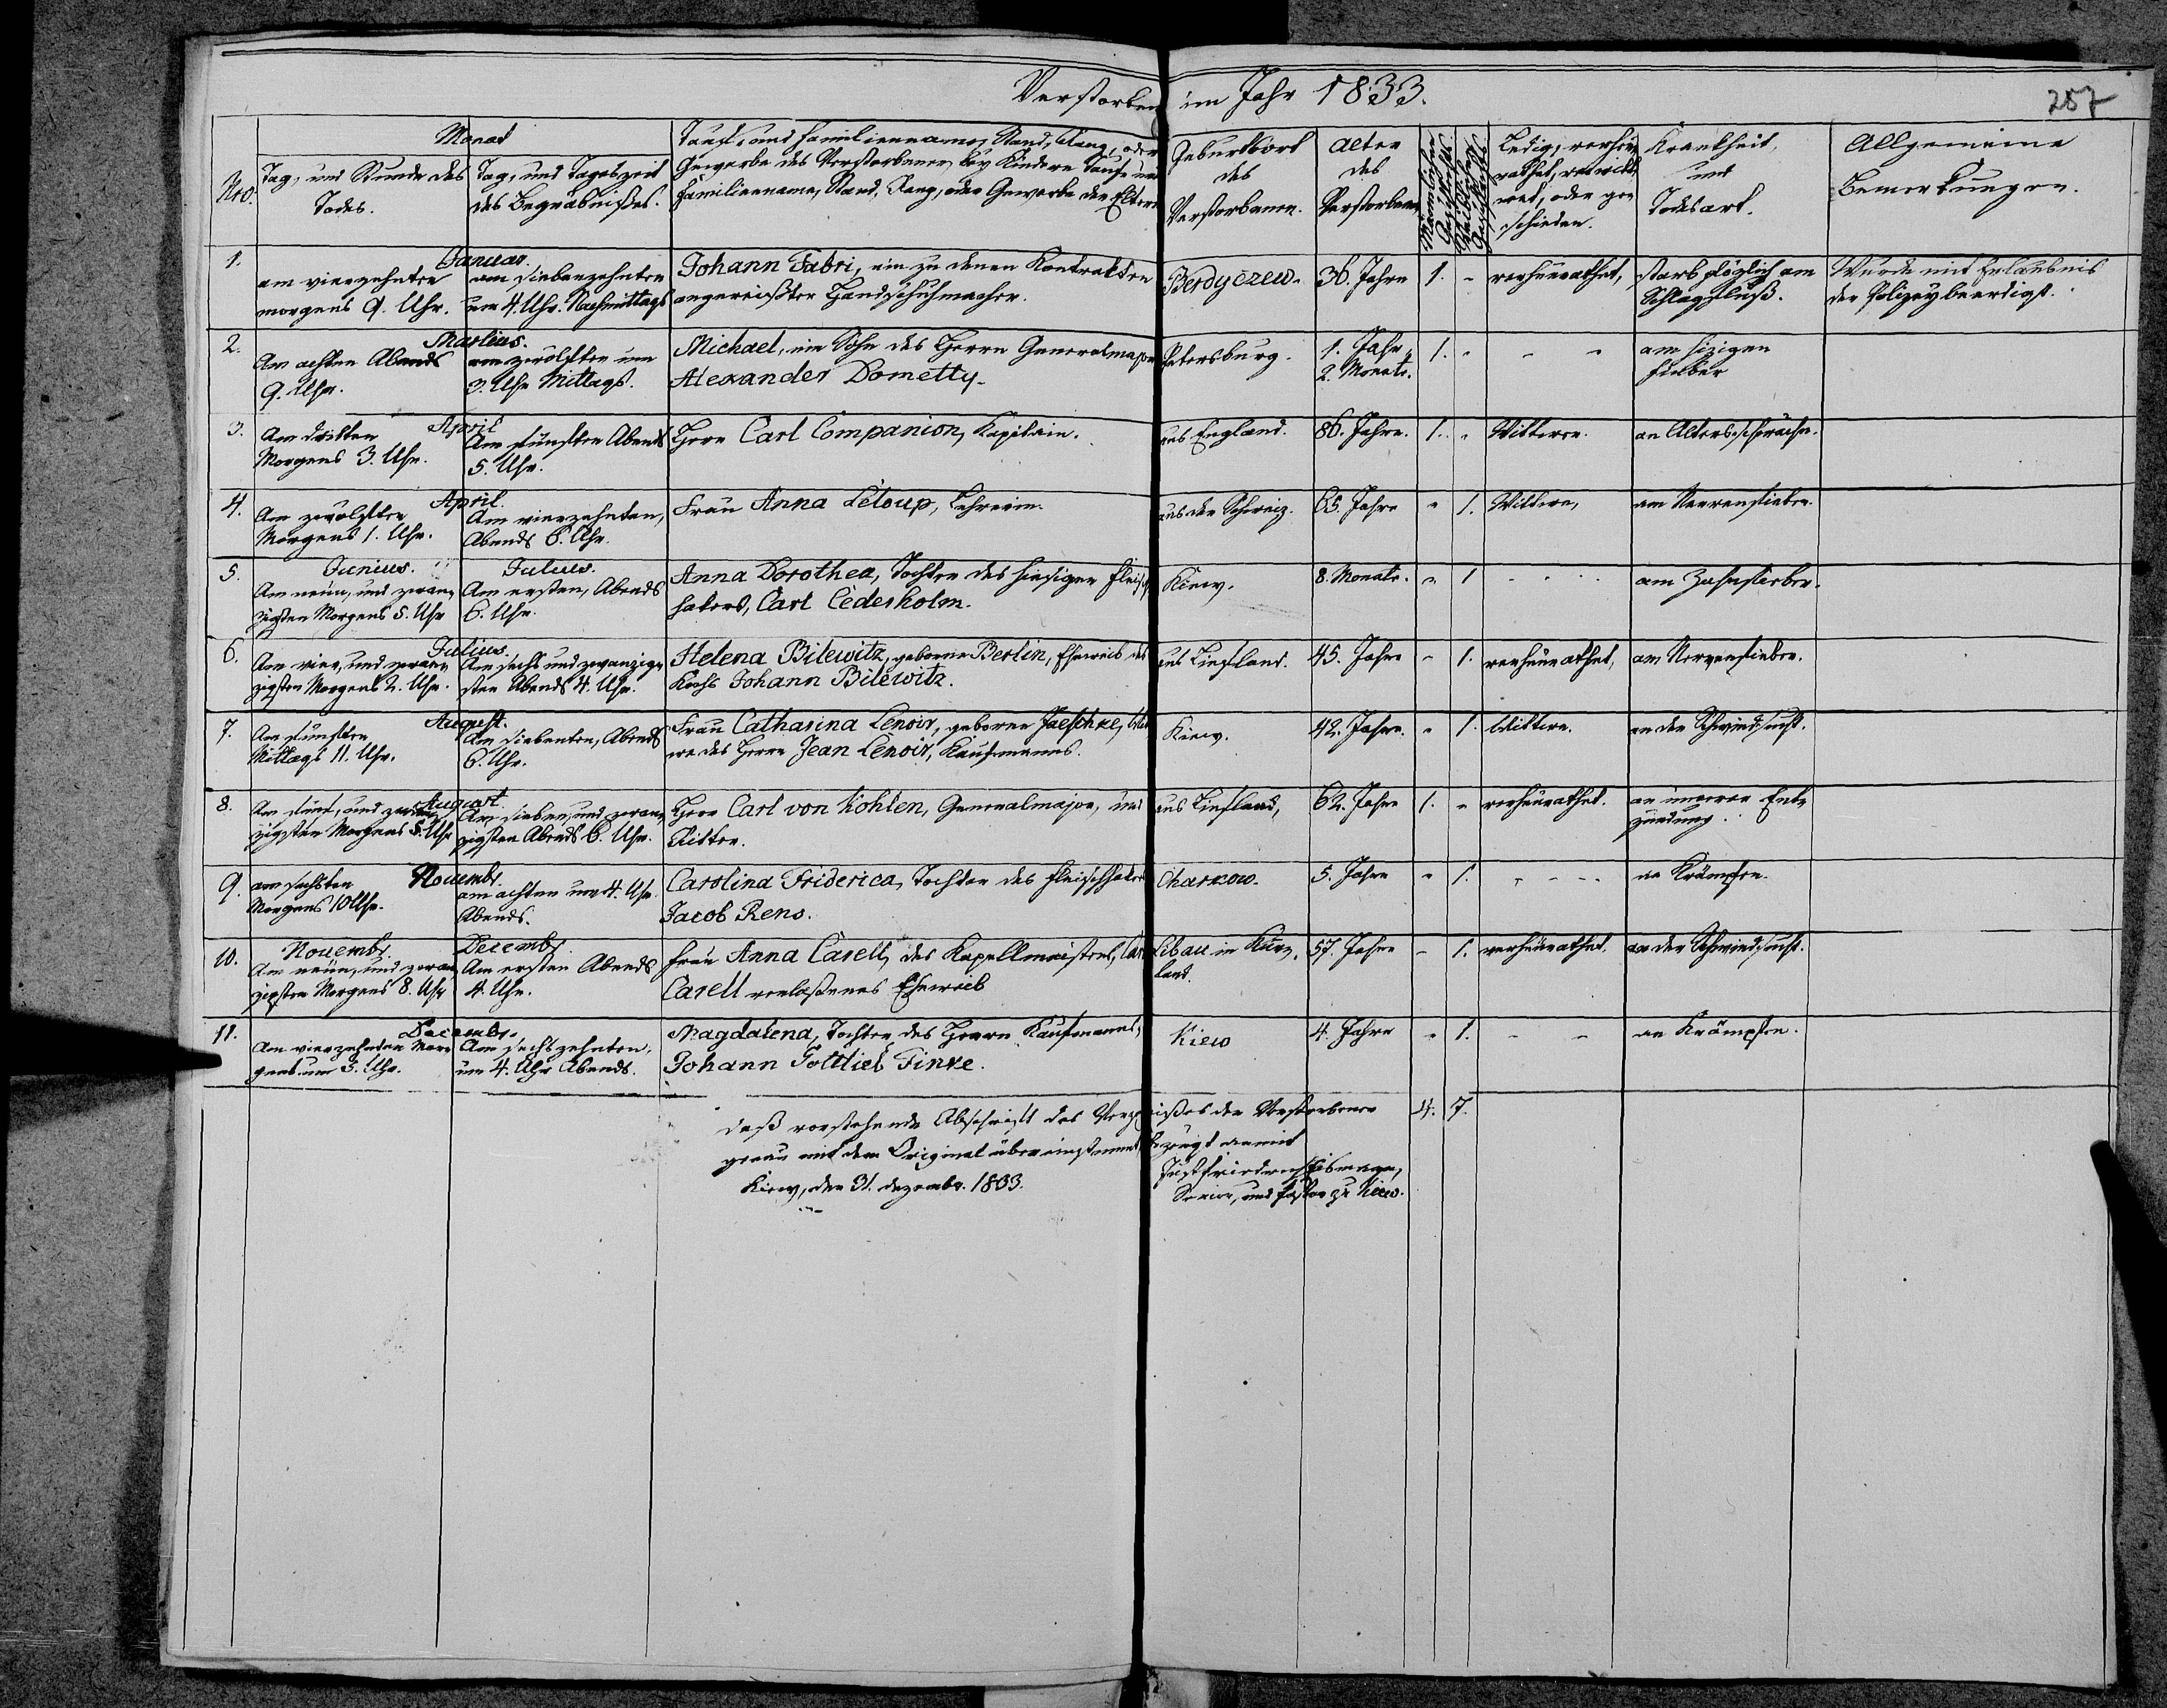 Verstorben im Jahr 1833.
257
Nro.
Monat
Tag, und Stunde des
Todes.
Tag, und Tageszeit
des Begräbnißes.
Tauf, und Familienname, Stand, Rang, oder
Gewerbe des Verstorbenen, bey Kindern Taufe und
Familienname, Stand, Rang, oder Gewerbe der Eltern
Geburtsort
des
Verstorbenen.
Alter
des
Verstorbenen
Männlichen
Geschlechts.
Weiblichen
Geschlechts
Ledig, verheu
rathet, verwitt
wet, oder ge
schieden.
Krankheit,
und
Todesart.
Allgemeine
Bemerkungen.
1.
Januar.
am vierzehnten
morgens 9. Uhr.
am siebenzehnten
um 4. Uhr. Nachmittags
Johann Fabri, ein zu denen Kontrakten
angereißter Handschuhmacher.
Berdyczew.
36. Jahre
1.
-
verheurathet,
starb plözlich am
Schlagfluß.
Wurde mit Erlaubnis
der Polizey beerdigt.
2.
Martius.
Am achten Abends
9. Uhr.
am zwölften um
3. Uhr Mittags.
Michael, ein Sohn des Herrn Generalmajor
Alexander Dometty.
Petersburg.
1. Jahr,
2. Monate.
1.
-
- -
am hizigen
Fieber
3.
April
Am dritten
Morgens 3. Uhr.
Am fünften Abends
5. Uhr.
Herr Carl Companion, Kapitain.
aus England.
86. Jahre.
1.
-
Wittwer.
an Altersschwäche.
4.
April.
Am zwölften
Morgens 1. Uhr.
Am vierzehnten,
Abends 6. Uhr.
Frau Anna Letoup, Lehrerin.
aus der Schweiz.
65. Jahre
-
1.
Wittwe,
am Nervenfieber.
5.
Junius.
Julius.
Am neun, und zwan
zigsten Morgens 5. Uhr
Am ersten, Abends
6. Uhr.
Anna Dorothea, Tochter des hiesigen Fleisch
hakers, Carl Cederholm.
Kiew.
8. Monate.
-
1
- - -
am Zahnfieber.
6.
Julius.
Am vier, und zwan
zigsten Morgens 2. Uhr.
Am sechs und zwanzig
sten Abends 4. Uhr.
Helena Bilewitz, geborne Berlin, Eheweib des
Kochs Johann Bilewitz.
aus Liefland.
45. Jahre
-
1.
verheurathet,
am Nervenfieber.
7.
August.
Am fünften
Mittags 11. Uhr.
Am siebenten, Abends
6. Uhr.
Frau Catharina Lenoir, geborne Jaeschke, Witt
we des Herrn Jean Lenoir, Kaufmanns.
Kiew.
42. Jahre.
-
1.
Wittwe.
an der Schwindsucht.
8.
August.
Am fünf, und zwan
zigsten Morgens 5. Uhr
Am sieben, und zwan
zigsten Abends 6. Uhr.
Herr Carl von Kohlen, Generalmajor, und
Ritter.
aus Liefland,
62. Jahre
1.
-
verheurathet.
an innerer Ent
zündung.
9.
Novembr.
am sechsten
Morgens 10 Uhr.
am achten um 4. Uhr
Abends.
Carolina Friderica, Tochter des Fleischhakers
Jacob Rens.
Charkow.
5. Jahre
-
1.
- - - -
an Krämpfen.
10.
Novembr.
Decembr.
Am neun, und zwan
zigsten Morgens 8. Uhr
Am ersten Abends
4. Uhr.
Frau Anna Carell, des Kapellmeisters, Carl
Carell verlaßenes Eheweib
Libau in Kur
land.
57. Jahre
-
1.
verheurathet.
an der Schwindsucht.
11.
Decembr.
Am vierzehnden Mor
gens um 3. Uhr.
Am sechszehnten,
um 4. Uhr Abends.
Magdalena, Tochter des Herrn Kaufmanns,
Johann Gottlieb Finke.
Kiew
4. Jahre
-
1.
- -
an Krämpfen.
Daß vorstehende Abschrift des Verzeichnißes der Verstorbenen
4. 7.
genau mit dem Original übereinstimmt, bezeugt anmit
Kiew, den 31. Dezember. 1833.
Justfriedrich Eismann,
Senior, und Pastor zu Kiew.